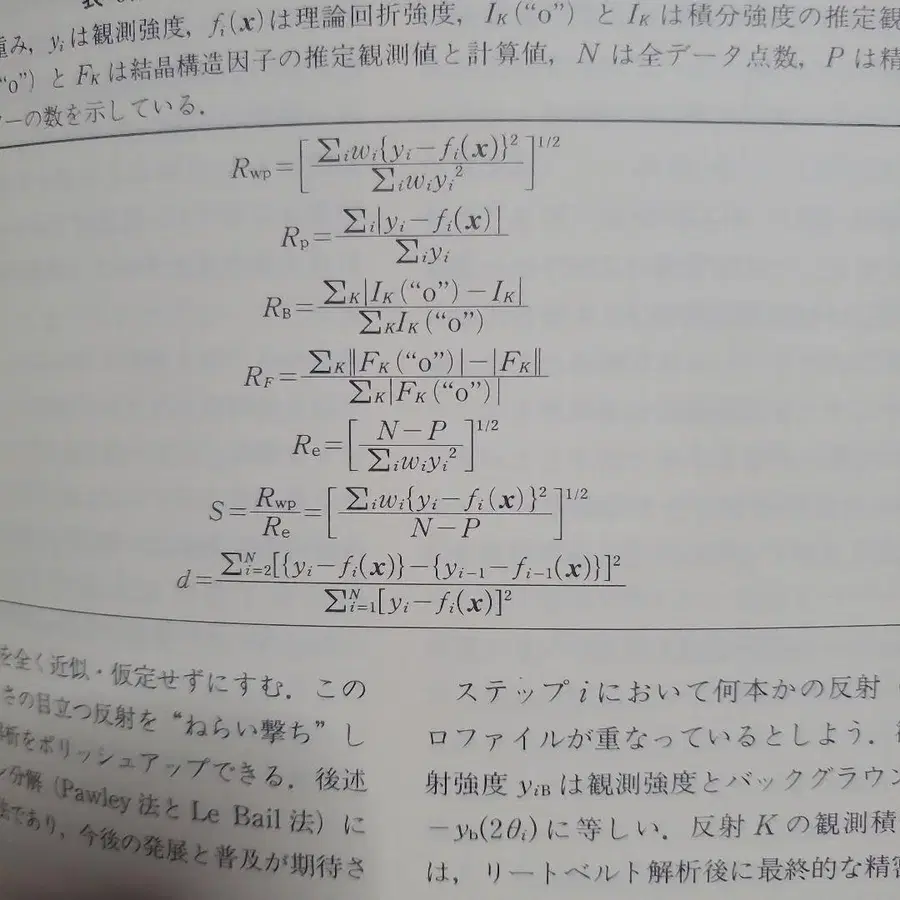 み, yᵢは観測強度, fᵢ(x)は理論回折強度, I_K(“o”) と I_K は積分強度の推定観
“o”) と F_K は結晶構造因子の推定観測値と計算値, N は全データ点数, P は精
ーの数を示している.
R_wp=[∑ᵢwᵢ{yᵢ−fᵢ(x)}²/∑ᵢwᵢyᵢ²]^1/2
R_p=∑ᵢ|yᵢ−fᵢ(x)|/∑ᵢyᵢ
R_B=∑_K|I_K(“o”)−I_K|/∑_K I_K(“o”)
R_F=∑_K||F_K(“o”)|−|F_K||/∑_K|F_K(“o”)|
R_e=[N−P/∑ᵢwᵢyᵢ²]^1/2
S=R_wp/R_e=[∑ᵢwᵢ{yᵢ−fᵢ(x)}²/N−P]^1/2
d=∑_{i=2}^N[{yᵢ−fᵢ(x)}−{y_{i−1}−f_{i−1}(x)}]²/∑_{i=1}^N[yᵢ−fᵢ(x)]²
を全く近似・仮定せずにすむ. この
さの目立つ反射を “ねらい撃ち” し
解析をポリッシュアップできる. 後述
分解 (Pawley 法と Le Bail 法) に
法であり, 今後の発展と普及が期待さ
ステップ i において何本かの反射
ロファイルが重なっているとしよう.
射強度 y_iB は観測強度とバックグラウン
−y_b(2θᵢ) に等しい. 反射 K の観測積
は, リートベルト解析後に最終的な精